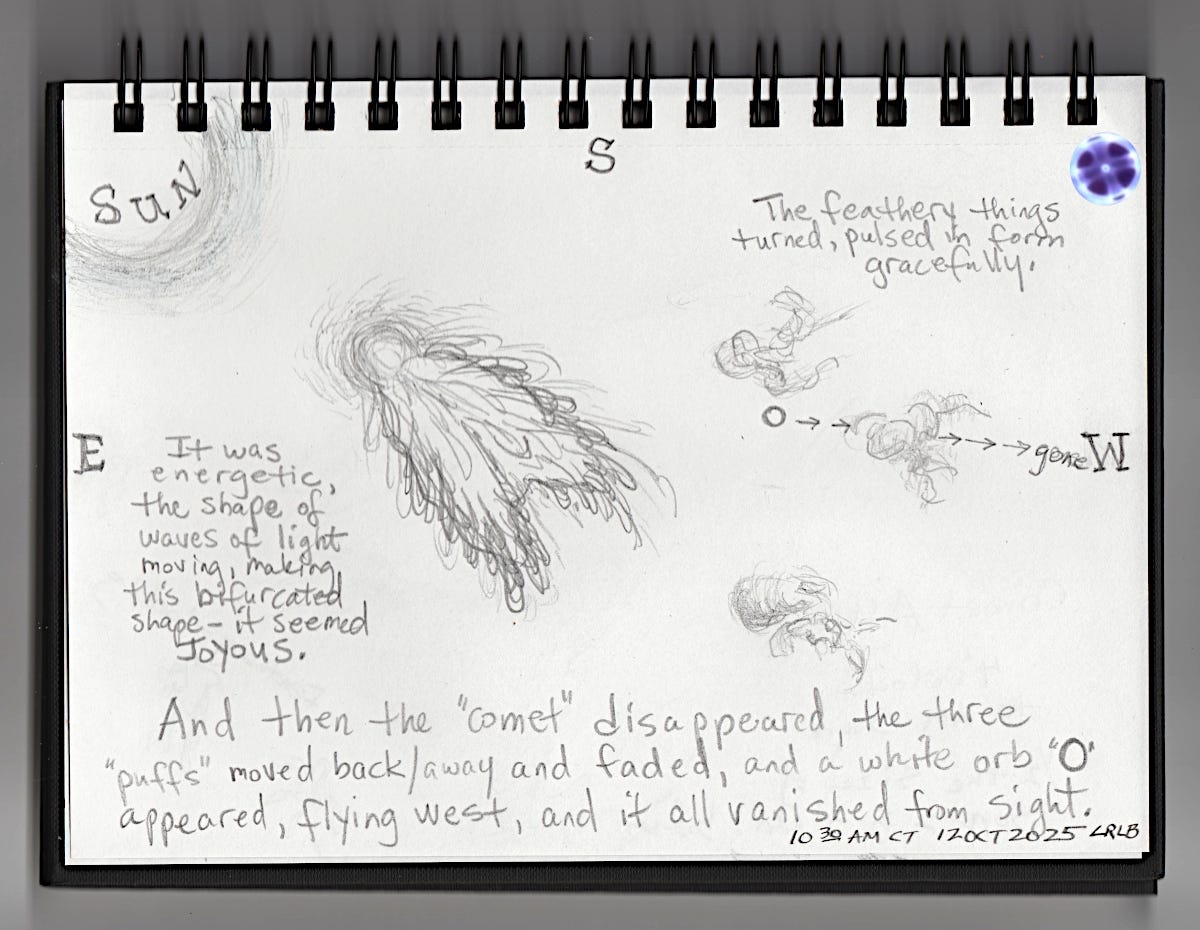 SUN
S
The feathery things
turned, pulsed in form
gracefully.
O →→ →→→ gone W
E
It was
energetic,
the shape of
waves of light
moving, making
this bifurcated
shape – it seemed
JOYOUS.
And then the "comet" disappeared, the three
"puffs" moved back/away and faded, and a white orb "O"
appeared, flying west, and it all vanished from sight.
10 30 AM CT 12 OCT 2025 LRLB